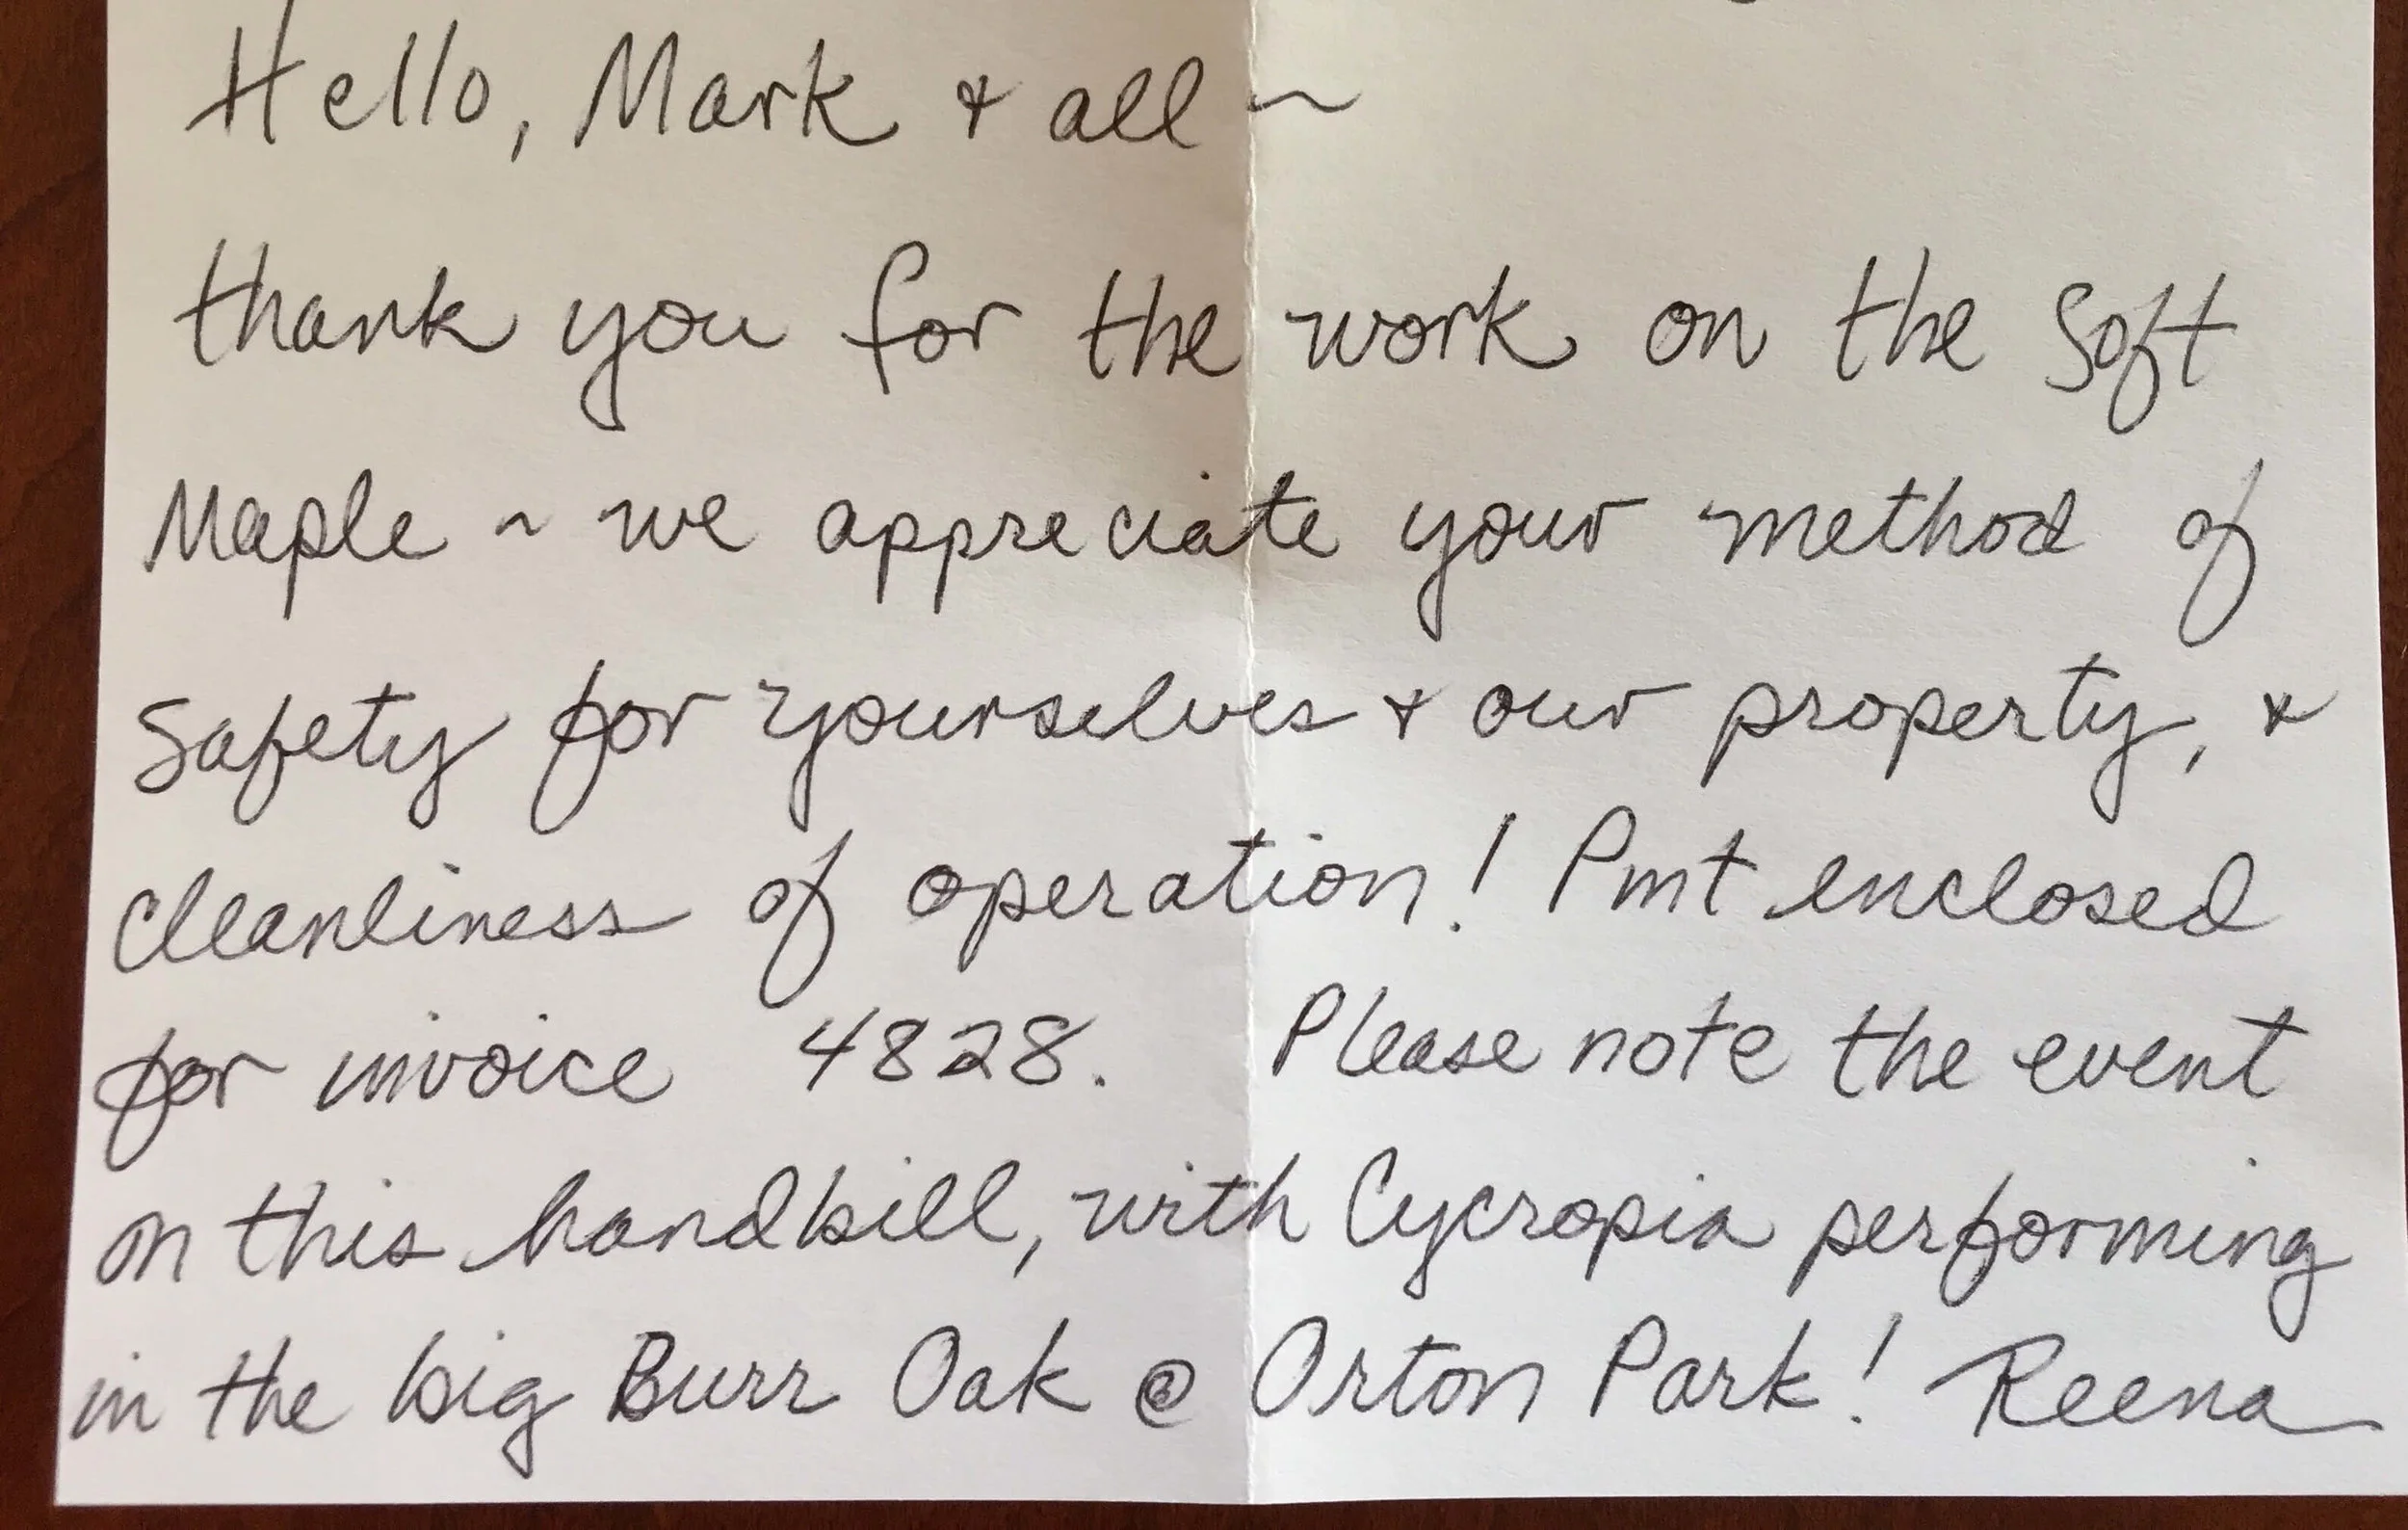 Hello, Mark & all ~
thank you for the work on the Soft
Maple ~ we appreciate your method of
Safety for yourselves & our property, &
cleanliness of operation! Pmt enclosed
for invoice 4828. Please note the event
on this handbill, with Cycropia performing
in the big Burr Oak @ Orton Park! Reena